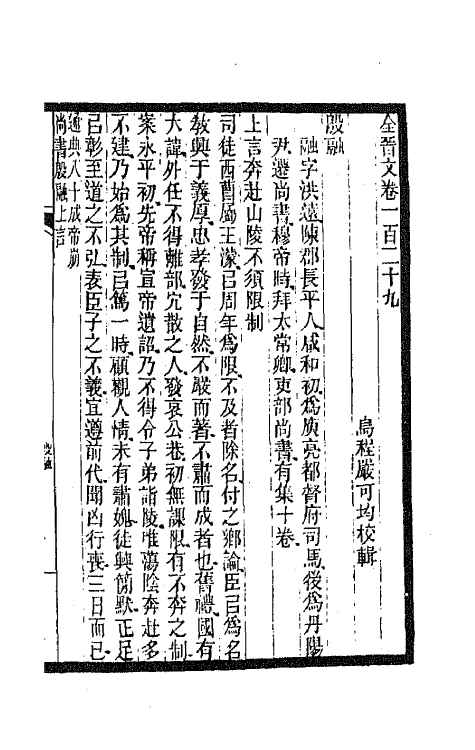 全晉文卷一百二十九
烏程嚴可均校輯
殷融
融字洪遠陳郡長平人咸和初爲庾亮都督府司馬後爲丹陽
尹遷尚書穆帝時拜太常卿吏部尚書有集十卷
上言奔赴山陵不須限制
司徒西曹屬王濛㠯周年爲限不及者除名付之鄉論臣㠯爲名
敎興于義厚忠孝發于自然不嚴而著不肅而成者也舊禮國有
大諱外任不得離部宂散之人發哀公巷初無課限有不奔之制
案永平初先帝稱宣帝遺詔乃不得令子弟詣陵唯蕩陰奔赴多
不建乃始爲其制㠯篤一時顧觀人情未有肅媿徒興簡默正足
㠯彰至道之不弘表臣子之不義宜遵前代聞凶行喪三日而已
通典八十成帝崩
尚書殷融上言
殷融
一